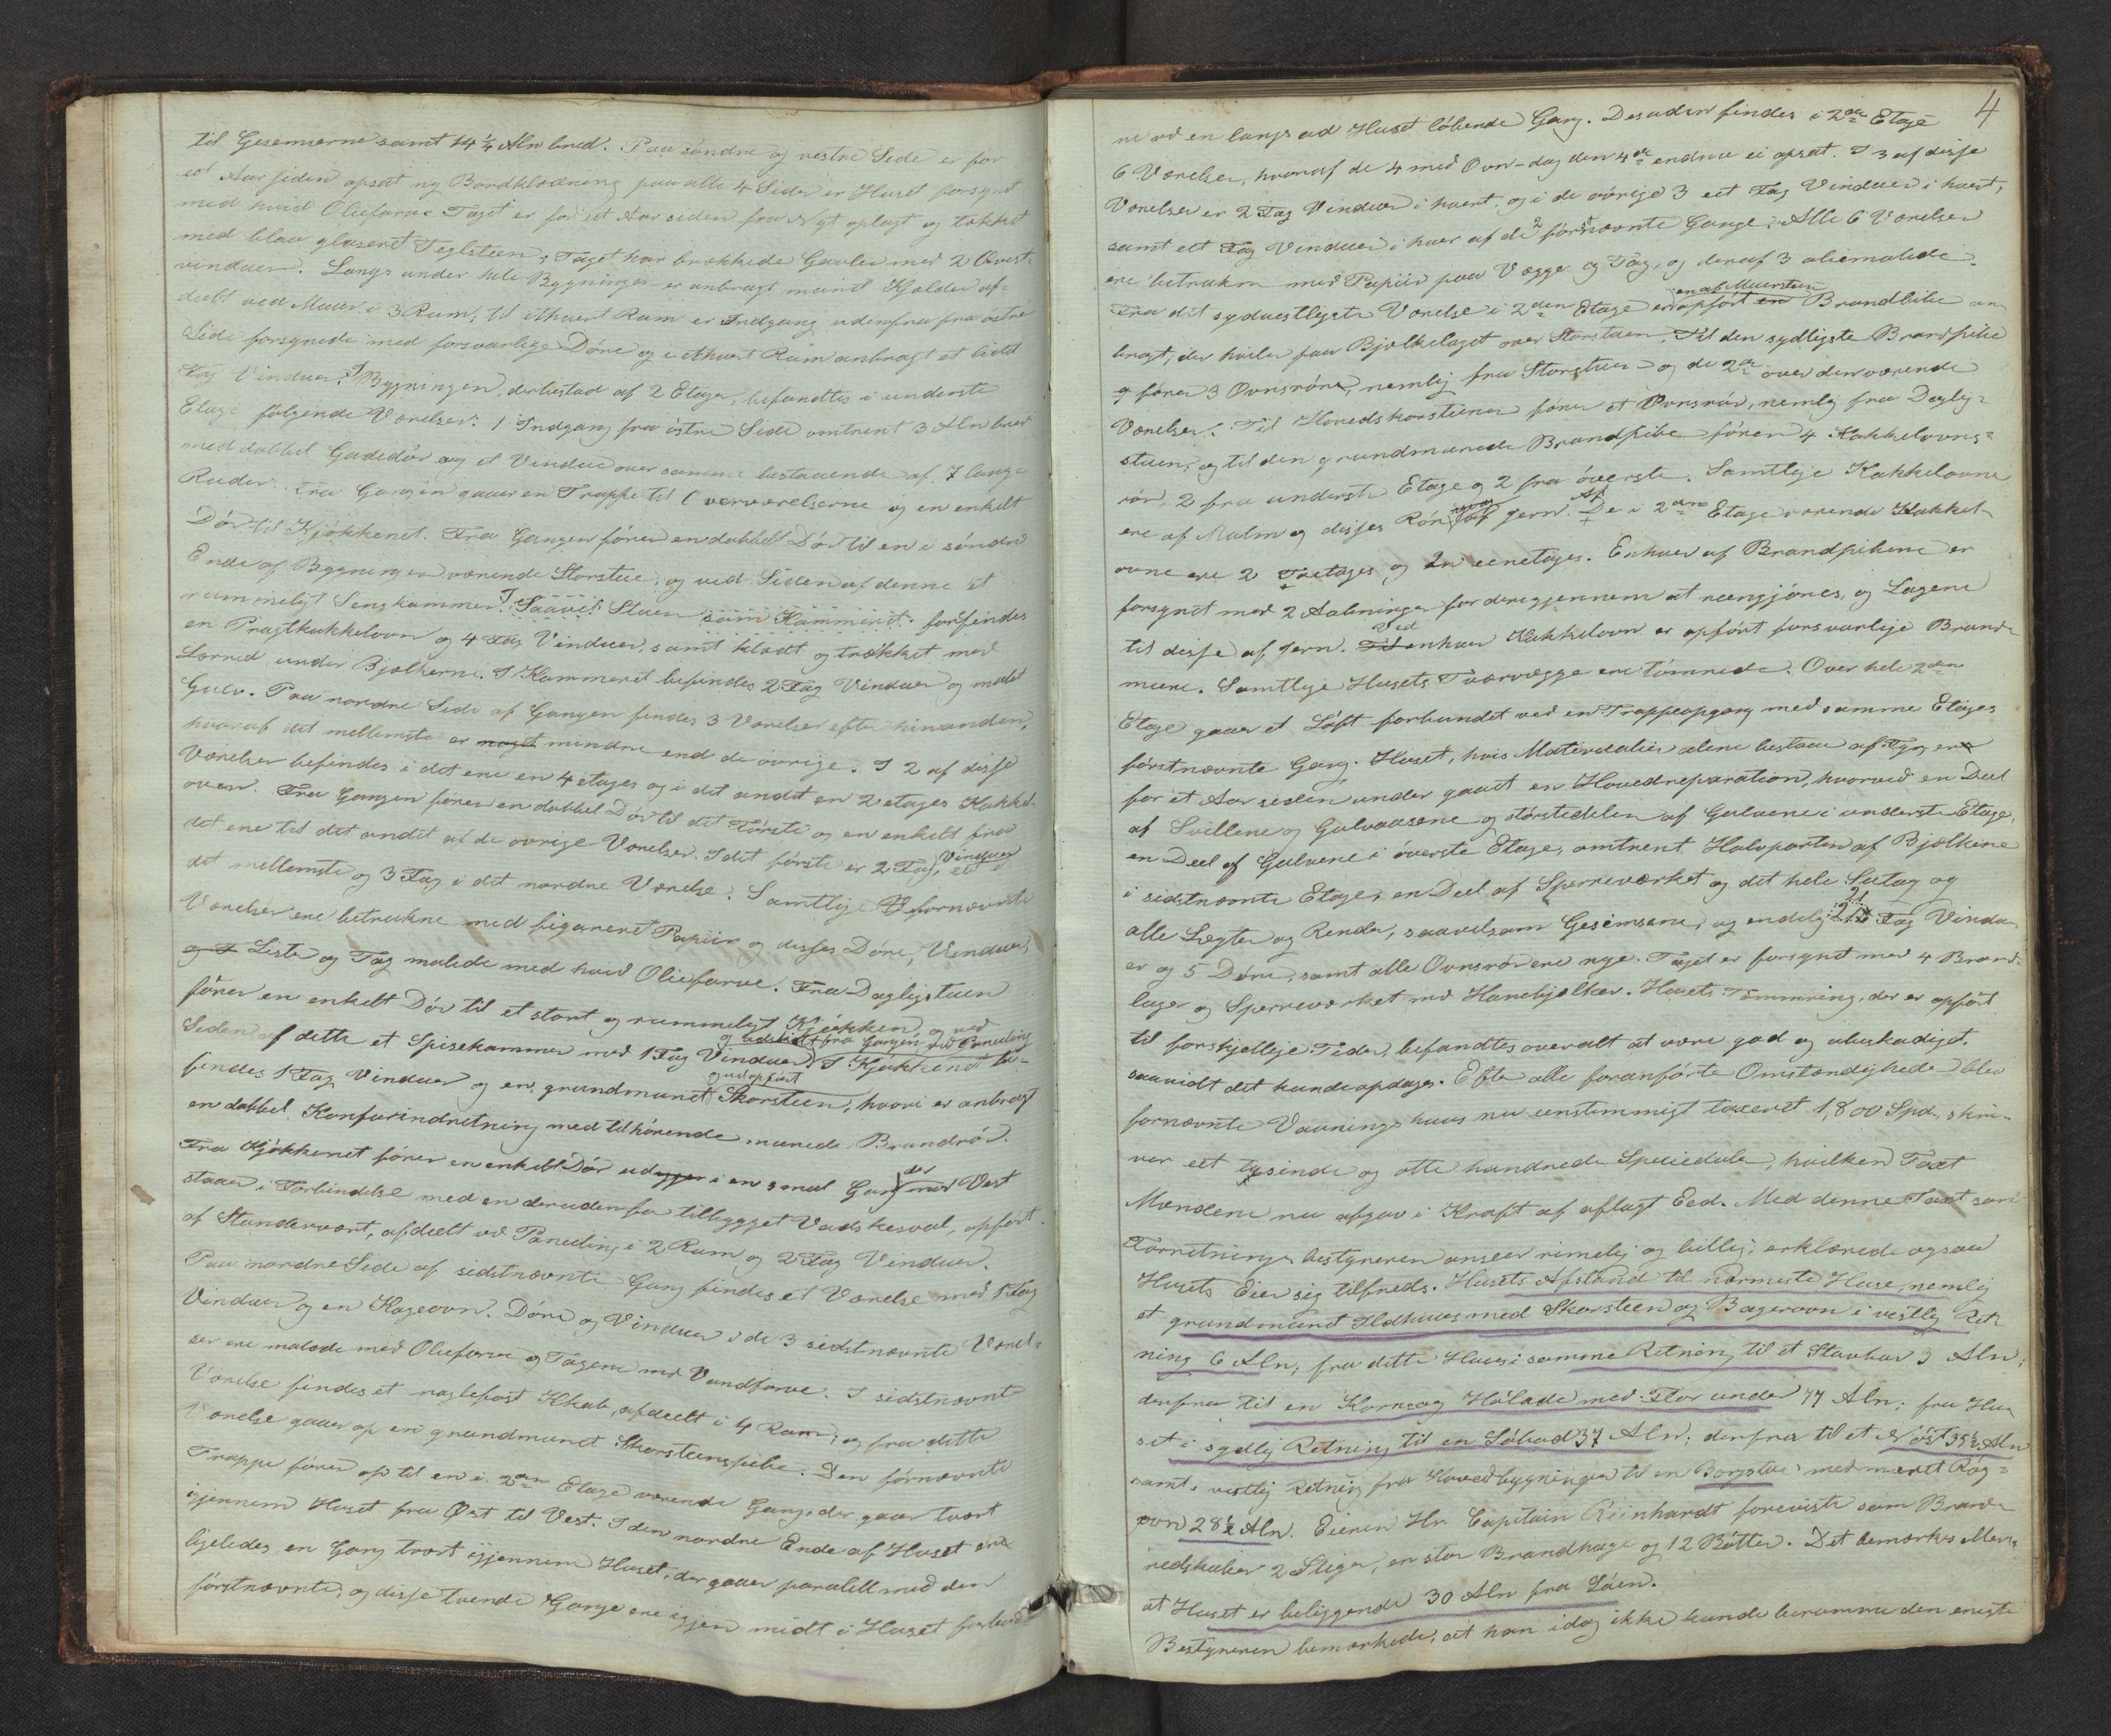 til Gesemserne samt 14 1/4 Aln bred. Paa søndre og vestre Side er for
eet Aar siden opsat ny Bordklædning paa alle 4 Sider er Huset forsynet
med hvid Oliefarve Taget er for et Aar siden fra Nyt oplagt og tækket
med blaae glaseret Teglsteen, Taget har brækkede Gavler med 2 Qvist-
vinduer. Langs under hele Bygningen er anbragt muret Kjælder af-
deelt ved Muur i 3 Rum; til ethvert Rum er Indgang udenfra fra østre
Side forsynede med forsvarlige Døre og i ethvert Rum anbragt et lidet
Fag Vinduer. I Bygningen, der bestod af 2 Etager, befandtes i underste
Etage følgende Værelser: 1 Indgang fra østre Side omtrent 3 Aln bred
med dobbel Gadedør og et Vindue over samme bestaaende af 7 lange
Ruder. Fra Gangen gaaer en Trappe til Overværelserne og en enkelt
Dør til Kjøkkenet. Fra Gangen fører en dobbel Dør til en i søndre
Ende af Bygningen værende Storstue, og ved Siden af denne et
rummeligt Sengkammer. I Saavel Stuen som Kammeret forefindes
en Pragtkakkelovn og 4 Fag Vinduer, samt klædt og trækket med
Lærred under Bjælkerne. I Kammeret befindes 2 Fag Vinduer og malet
Gulv. Paa nordre Side af Gangen findes 3 Værelser efter hinanden,
hvoraf det mellemste er noget mindre end de øvrige. I 2 af disse
Værelser befindes i det ene en 4 etages og i det andet en 2 etages Kakkel-
ovn. Fra Gangen fører en dobbel Dør til det Første og en enkelt fra
det ene til det andet af de øvrige Værelser. I det første er 2 Fag Vinduer, et i
det mellemste og 3 Fag i det nordre Værelse. Samtlige fornævnte
Værelser ere betrukne med figureret Papiir og disses Døre, Vinduer,
og Lister og Tag malede med hvid Oliefarve. Fra Dagligstuen
fører en enkelt Dør til et stort og rummeligt Kjøkken, og ved
og adskildt fra Gangen ved Paneling
Siden af dette et Spisekammer med 1 Fag Vinduer. I Kjøkkenet be-
findes 1 Fag Vinduer og en grundmuret og udopført Skorsteen, hvori er anbragt
en dobbel Komfurindretning med tilhørende murede Brandrør.
Fra Kjøkkenet fører en enkelt Dør ud i en smal Gang der mod Vest
staaer i Forbindelse med en derudenfor tilbygget Vadskesval, opført
af Standerværk, afdeelt ved Paneling i 2 Rum og 2 Fag Vinduer.
Paa nordre Side af sidstnævnte Gang findes et Værelse med 1 Fag
Vinduer og en Kageovn. Døre og Vinduer i de 3 sidstnævnte Værel-
ser ere malede med Oliefarve og Tagene med Vandfarve. I sidstnævnte
Værelse findes et naglefast Skab, afdeelt i 4 Rum; og fra dette
Værelse gaaer op en grundmuret Skorsteenspibe. Den førnævnte
Trappe fører op til en i 2den Etage værende Gang, der gaaer tvært
igjennem Huset fra Øst til Vest. I den nordre Ende af Huset er
ligeledes en Gang tvært igjennem Huset, der gaaer paralell med den
førstnævnte, og disse tvende Gange ere igjen midt i Huset forbund-
4
ne ved en langs ad Huset løbende Gang. Desuden findes i 2den Etage
6 Værelser, hvoraf de 4 med Ovn – dog den 4de endnu ei opsat. I 3 af disse
Værelser er 2 Fag Vinduer i hvert, og i de øvrige 3 eet Fag Vinduer i hvert,
samt eet Fag Vinduer i hver af de 2 førstnævnte Gange. Alle 6 Værelser
ere betrukne med Papiir paa Vægge og Tag, og deraf 3 oliemalede.
Fra det sydvestligste Værelse i 2den Etage er opført en af Muursteen Brandpibe an-
bragt, der hviler paa Bjælkelaget over Storstuen. Til den sydligste Brandpibe
fører 3 Ovnsrøre, nemlig fra Storstuen og de 2de over den værende
Værelser. Til Hovedskorsteenen fører et Ovnsrør, nemlig fra Daglig-
stuen, og til den grundmurede Brandpibe fører 4 Kakkelovns-
rør, 2 fra underste Etage og 2 fra øverste. Samtlige Kakkelovne
ere af Malm og disses Rør af Jern. Af De i 2den Etage værende Kakkel-
ovne ere 2 Toetages, og 2n eenetages. Enhver af Brandpiberne er
forsynet med 2 Aabninger for derigjennem at reengjøres, og Lagene
til disse af Jern. Ved enhver Kakkelovn er opført forsvarlige Brand-
mure. Samtlige Husets Tværvægge ere tømrede. Over hele 2den
Etage gaaer et Loft forbundet ved en Trappeopgang med samme Etages
førstnævnte Gang. Huset, hvis Materialier alene bestaae af Fyr, er
for et Aar siden undergaaet en Hovedreparation, hvorved en Deel
af Svillene og Gulvaasene og størstedelen af Gulvene i underste Etage,
en Deel af Gulvene i øverste Etage, omtrent Halvparten af Bjælkene
i sidstnævnte Etage, en Deel af Sperreværket og det hele Sutag og
alle Lægter og Render, saavelsom Gesimsene, og endelig 21 Fag Vindu-
er og 5 Døre, samt alle Ovnsrør ere nye. Taget er forsynet med 4 Brand-
luger og Sperreværket med Hanebjelker. Husets Tømmring, der er opført
til forskjellige Tider, befandtes overalt at være god og ubeskadiget,
saavidt det kunde opdages. Efter alle foranførte Omstændigheder blev
fornævnte Vaaningshuus nu eenstemmigt taxeret 1,800 Spd., skri-
ver eet tusinde og otte hundrede Speciedaler, hvilken Taxt
Mændene nu afgav i Kraft af aflagt Eed. Med denne Taxt som
Forretningsbestyreren anseer rimelig og billig, erklærede ogsaa
Husets Eier sig tilfreds. Husets Afstand til nærmeste Huse, nemlig
et grundmuret Ildhuus med Skorsteen og Bagerovn i vestlig Ret-
ning 6 Aln; fra dette Huus i samme Retning til et Stabbur 3 Aln;
derfra til en Korn- og Hølade med Flor under 77 Aln; fra Hu-
set i sydlig Retning til en Søbod 37 Aln; derfra til et Nøst 35 1/2 Aln
samt i vestlig Retning fra Hovedbygningen til en Borgstue med muret Røg-
ovn 28 1/2 Aln. Eieren Hr. Capitain Reinhardt foreviste som Brand-
redskaber 2 Stiger, en stor Brandhage og 12 Bøtter. Det bemærkes
at Huset er beliggende 30 Aln fra Søen.
Bestyreren bemærkede, at han idag ikke kunde beramme den eneste